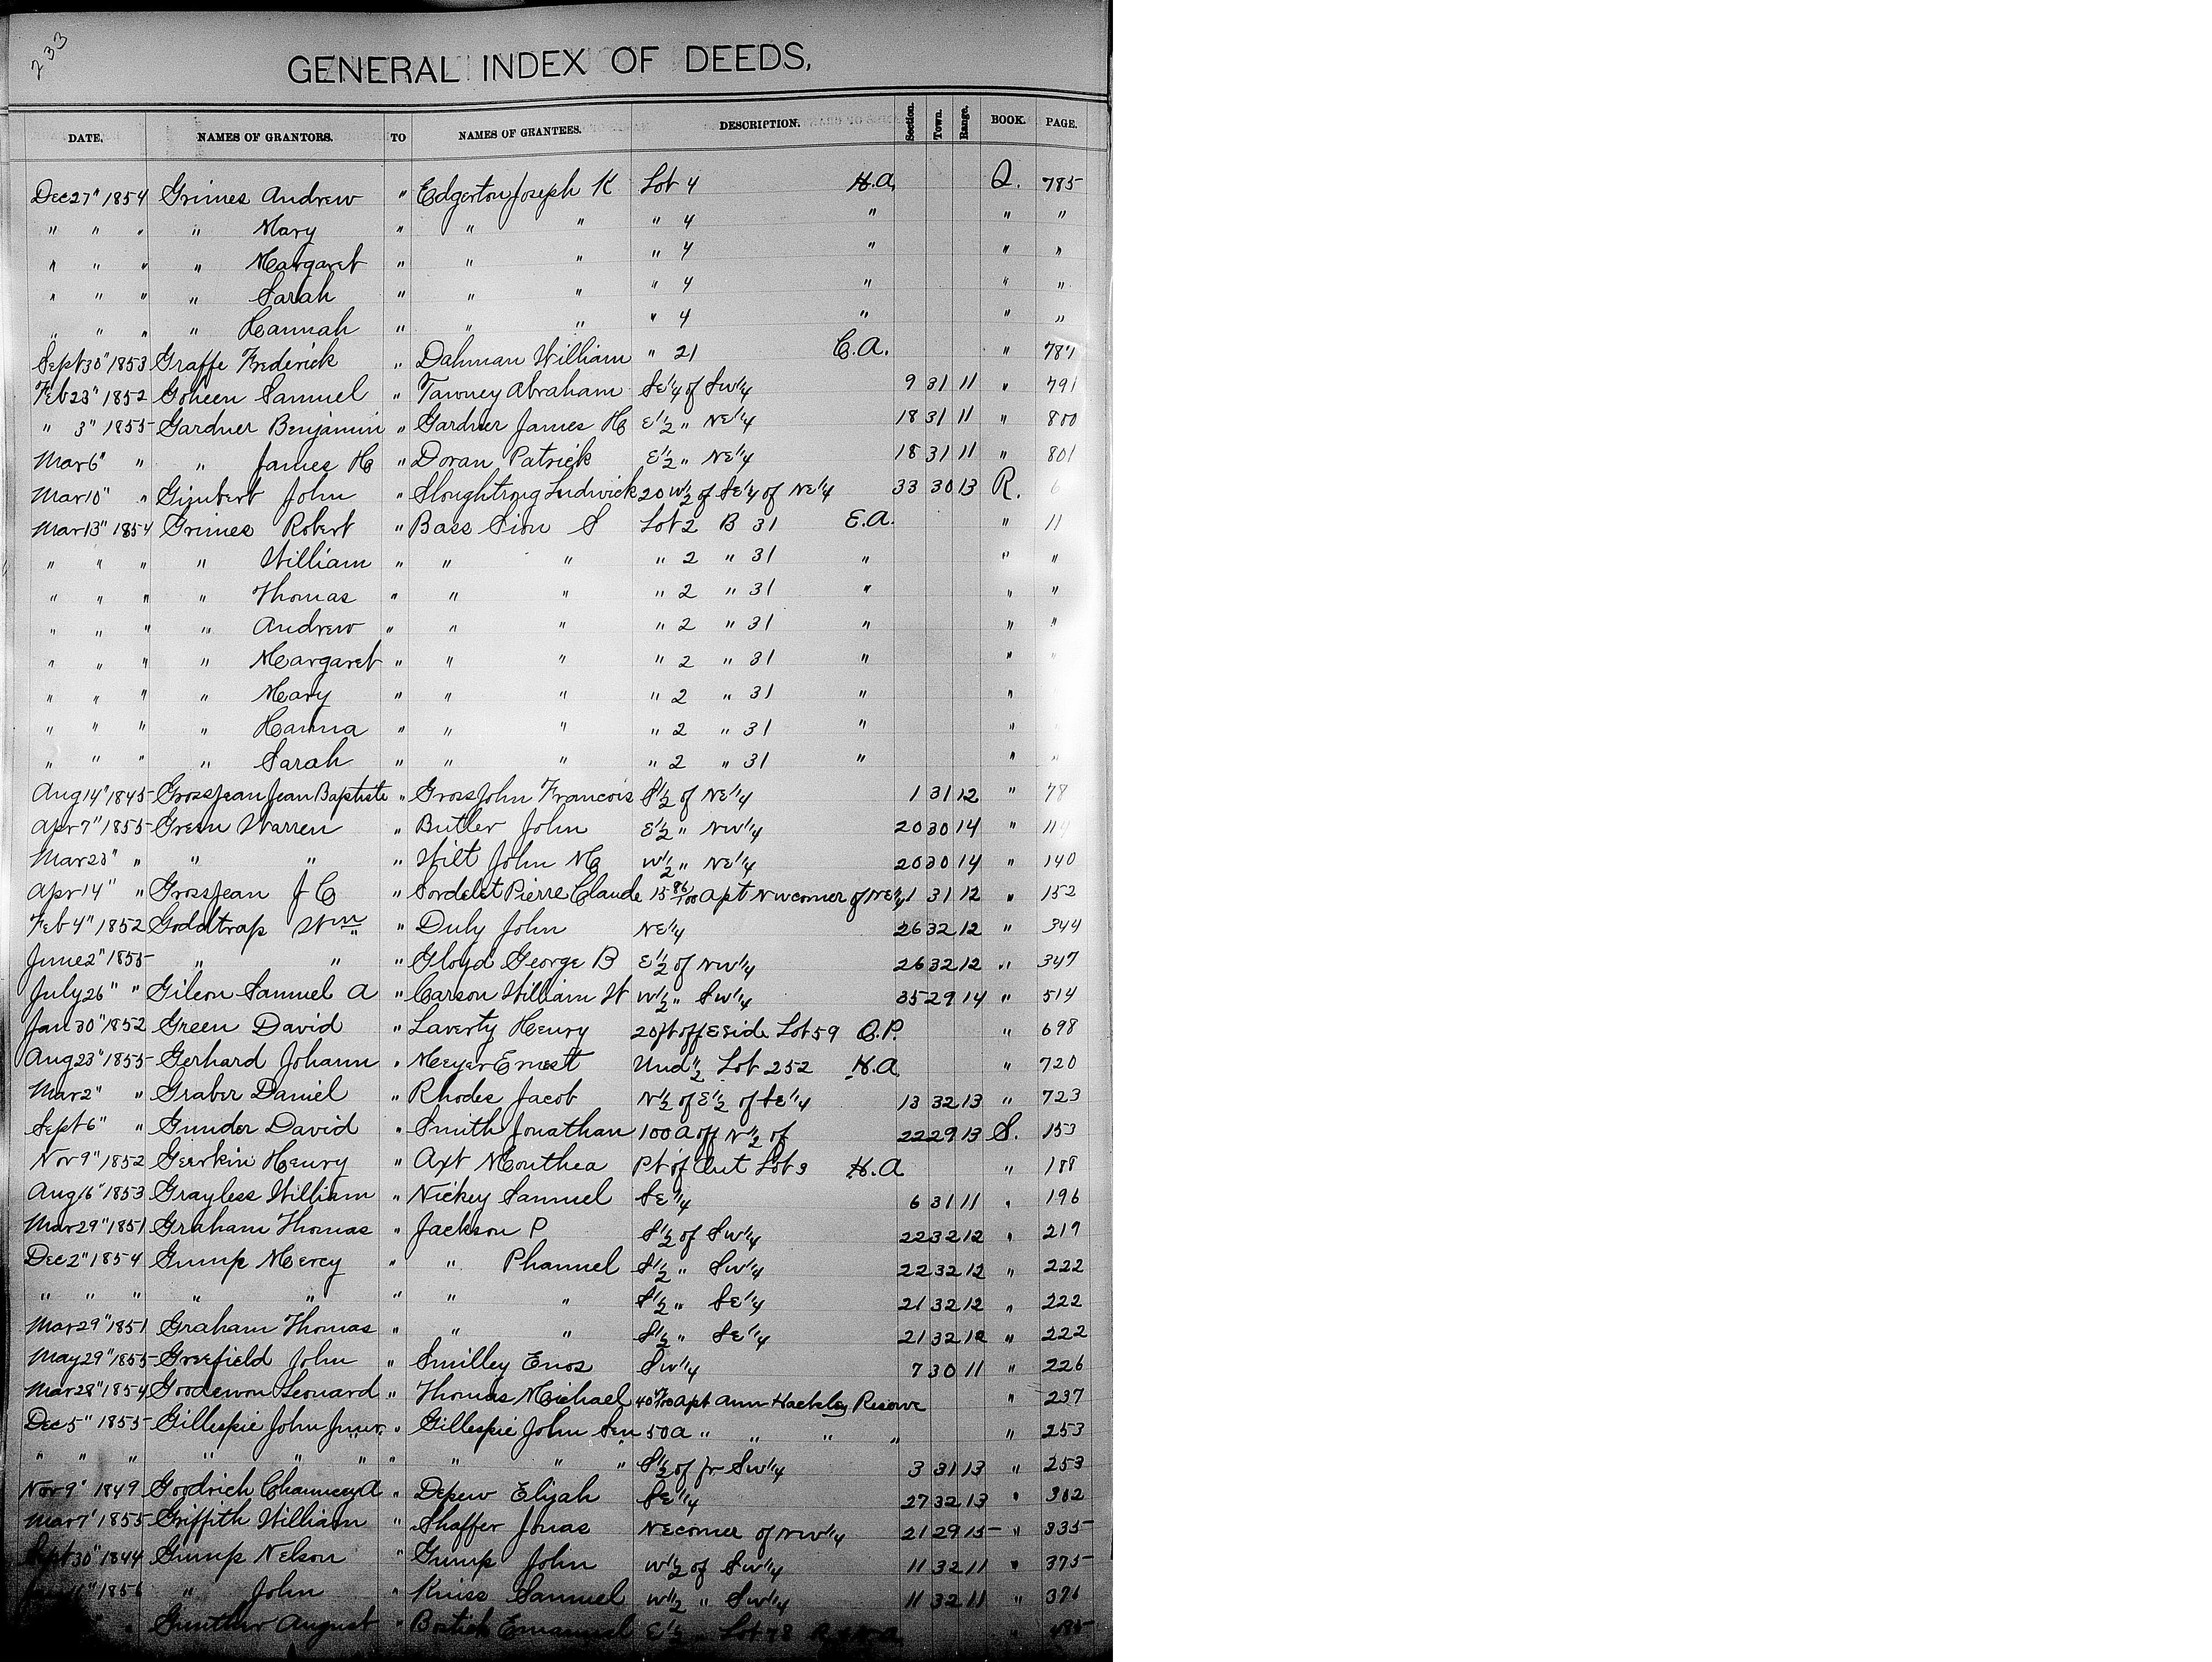 233
GENERAL INDEX OF DEEDS,
DATE, NAMES OF GRANTORS. TO NAMES OF GRANTEES. DESCRIPTION. Section. Town. Range. BOOK. PAGE.
Dec 27" 1854 Grimes Andrew " Edgerton Joseph K Lot 4 H.A. Q. 785
" " " " Mary " " " " 4 " " "
" " " " Margaret " " " " 4 " " "
" " " " Sarah " " " " 4 " " "
" " " " Hannah " " " " 4 " " "
Sept 30" 1853 Graffe Frederick " Dahman William " 21 C.A. " 787
Feb 23" 1852 Goheen Samuel " Tawney Abraham Se 1/4 of Sw 1/4 9 31 11 " 791
" 3" 1855 Gardner Benjamin " Gardner James H E 1/2 " NE 1/4 18 31 11 " 800
Mar 6" " " James H " Doran Patrick E 1/2 " NE 1/4 18 31 11 " 801
Mar 10" " John " Ludwick 20 W 1/2 of Se 1/4 of NE 1/4 33 30 13 R. 6
Mar 13" 1854 Grimes Robert " Bass Sion S Lot 2 B 31 E.A. " 11
" " " " William " " " " 2 " 31 " " "
" " " " Thomas " " " " 2 " 31 " " "
" " " " Andrew " " " " 2 " 31 " " "
" " " " Margaret " " " " 2 " 31 " " "
" " " " Mary " " " " 2 " 31 " "
" " " " Hanna " " " " 2 " 31 " " "
" " " " Sarah " " " " 2 " 31 " " "
Aug 14" 1845 Grossjean Jean Baptiste " GrossJohn Francois S 1/2 of NE 1/4 1 31 12 " 78
Apr 7" 1855 Green Warren " Butler John E 1/2 " NW 1/4 20 30 14 " 114
Mar 23" " " " " Wilt John M W 1/2 " NE 1/4 20 30 14 " 140
Apr 14" " Grossjean J C " Sordelet Pierre Claude 15 86/100 A pt NW corner of NE 1/4 1 31 12 " 152
Feb 4" 1852 Goddtrap Wm " Duly John NE 1/4 26 32 12 " 344
June 2" 1855 " " " Gloyd George B E 1/2 of NW 1/4 26 32 12 " 347
July 26" " Gileon Samuel A " Carson William W W 1/2 " SW 1/4 35 29 14 " 514
Jan 30" 1852 Green David " Laverty Henry 20 ft off E side Lot 59 O.P. " 698
Aug 23" 1855 Gerhard Johann " Meyer Ernest Und 1/2 Lot 252 H.A " 720
Mar 2" " Graber Daniel " Rhodes Jacob N 1/2 of E 1/2 of Se 1/4 13 32 13 " 723
Sept 6" " Gunder David " Smith Jonathan 100 A off N 1/2 of 22 29 13 S. 153
Nov 9" 1852 Geerkin Henry " Axt Mouthea Pt of Out Lot 3 H.A " 188
Aug 16" 1853 Grayless William " Nickey Samuel Se 1/4 6 31 11 " 196
Mar 29" 1851 Graham Thomas " Jackson P S 1/2 of Sw 1/4 22 32 12 " 219
Dec 2" 1854 Gump Mercy " " Phannel S 1/2 " Sw 1/4 22 32 12 " 222
" " " " " " " " S 1/2 " Se 1/4 21 32 12 " 222
Mar 29" 1851 Graham Thomas " " " S 1/2 " Se 1/4 21 32 12 " 222
May 29" 1855 Greefield John " Smilley Enos Sw 1/4 7 30 11 " 226
Mar 28" 1854 Leonard " Thomas Michael A pt Ann Hackley Reserve " 237
Dec 5" 1855 Gillespie John Junr. " Gillespie John Sen 50 A " " " " " 253
" " " " " " " " " " S 1/2 of fr Sw 1/4 3 31 13 " 253
Nov 9" 1849 Goodrich Chauncey A " Depew Elijah Se 1/4 27 32 13 " 302
Mar 7" 1855 Griffith William " Shaffer Jonas NE corner of NW 1/4 21 29 15 " 335
Sept 30" 1844 Gump Nelson " Gump John W 1/2 of Sw 1/4 11 32 11 " 375
11" 1856 " John " Kniss Samuel W 1/2 " Sw 1/4 11 32 11 " 376
Gunther August " Emanuel E 1/2 " Lot 78